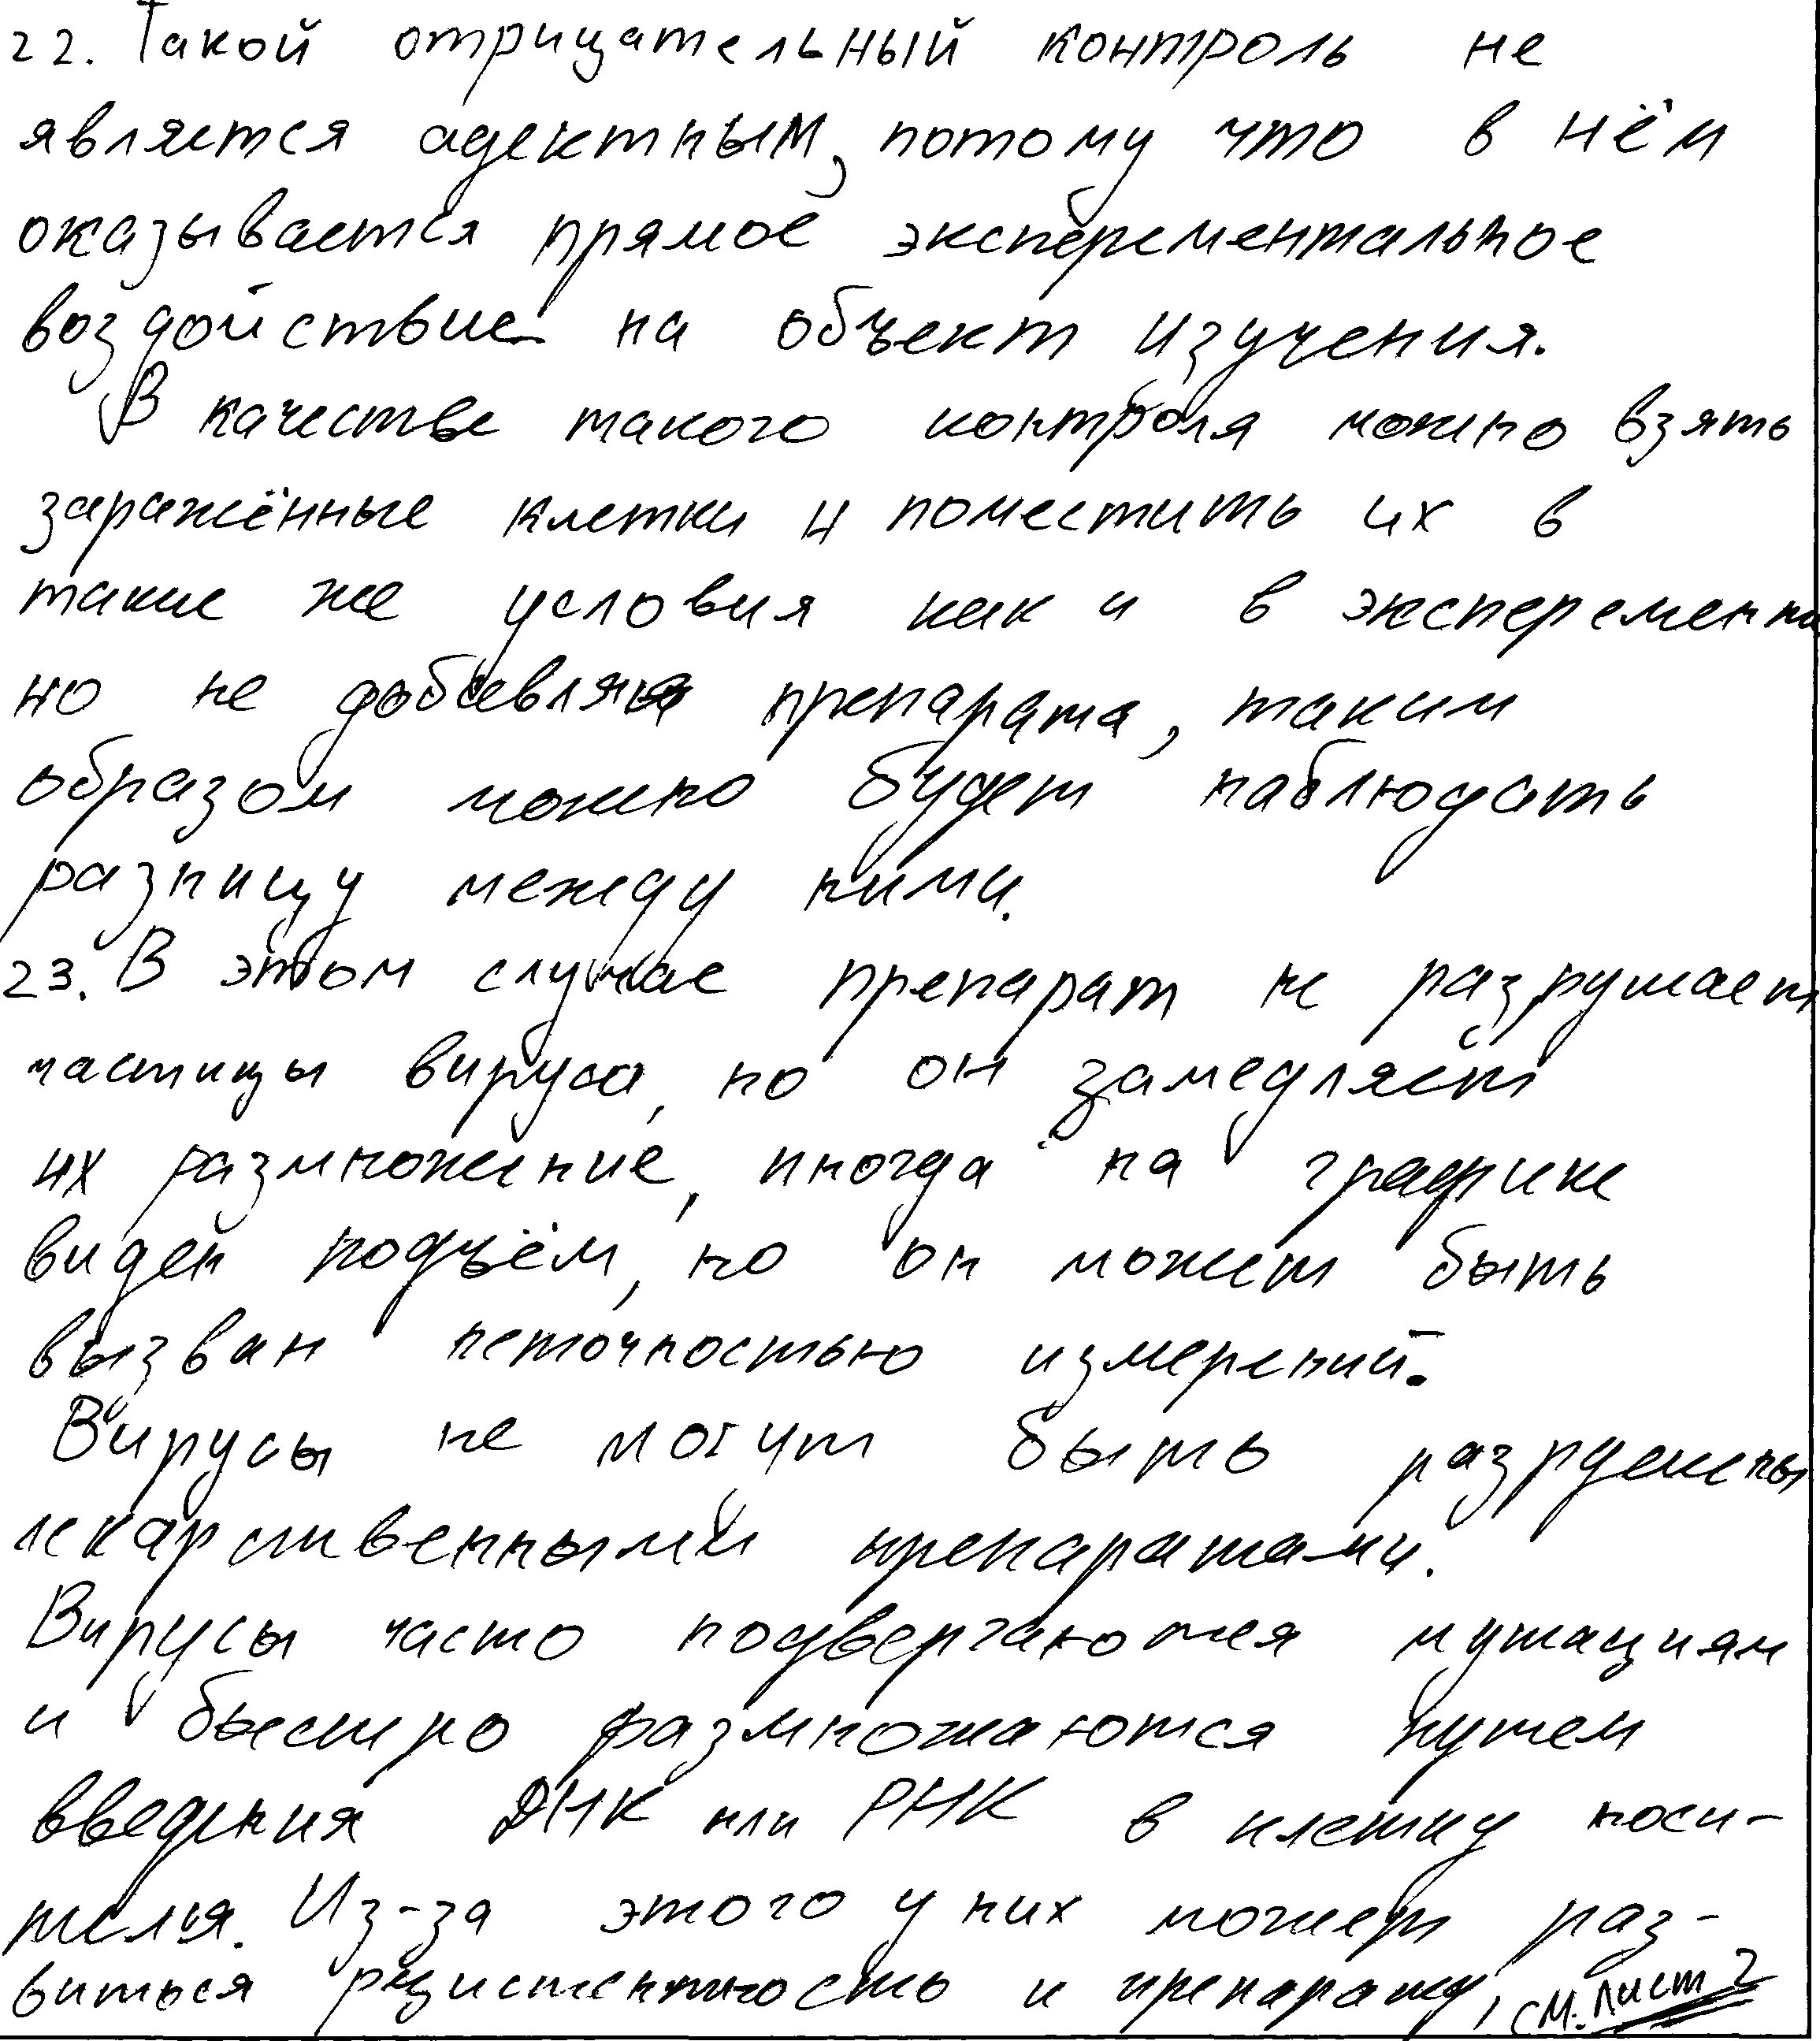 22. Такой отрицательный контроль не
является адектным, потому что в нём
оказывается прямое эксперементальное
воздойствие на объект изучения.
В качестве такого контроля можно взять
заражённые клетки и поместить их в
такие же условия как и в эксперемента
но не добавляя препарата, таким
образом можно будет наблюдать
разницу между ними.
23. В этом случае препарат не разрушает
частицы вируса, но он замедляет
их размножение, иногда на графике
виден подъём, но он может быть
вызван неточностью измерений.
Вирусы не могут быть разрушены
лекарственными препаратами.
Вирусы часто подвергаются мутациям
и быстро размножаются путем
введения ДНК или РНК в клетку носи-
теля. Из-за этого у них может раз-
виться резистентность к препарату, см. лист 2